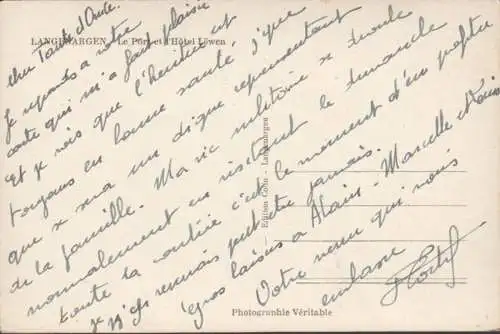 LANGENARGEN, Le Port et l'Hôtel Löwen
Cher Tante d'Oncle.
Je réponds a votre
carte qui m'a fait plaisir
Et je vois que l'heritier est
toujours en bonne santé, j'que
que x sera un digne representant
de la famille. Ma vie militaire x
normalement en visitant le dimanche
toute la contrée c'est le moment d'en profiter
je n'y reviens peut être jamais.
gros baisers a Alain - Marcelle et
Votre neveu qui vous
embrasse
Edition Gohl - Langenargen
Photographie Véritable